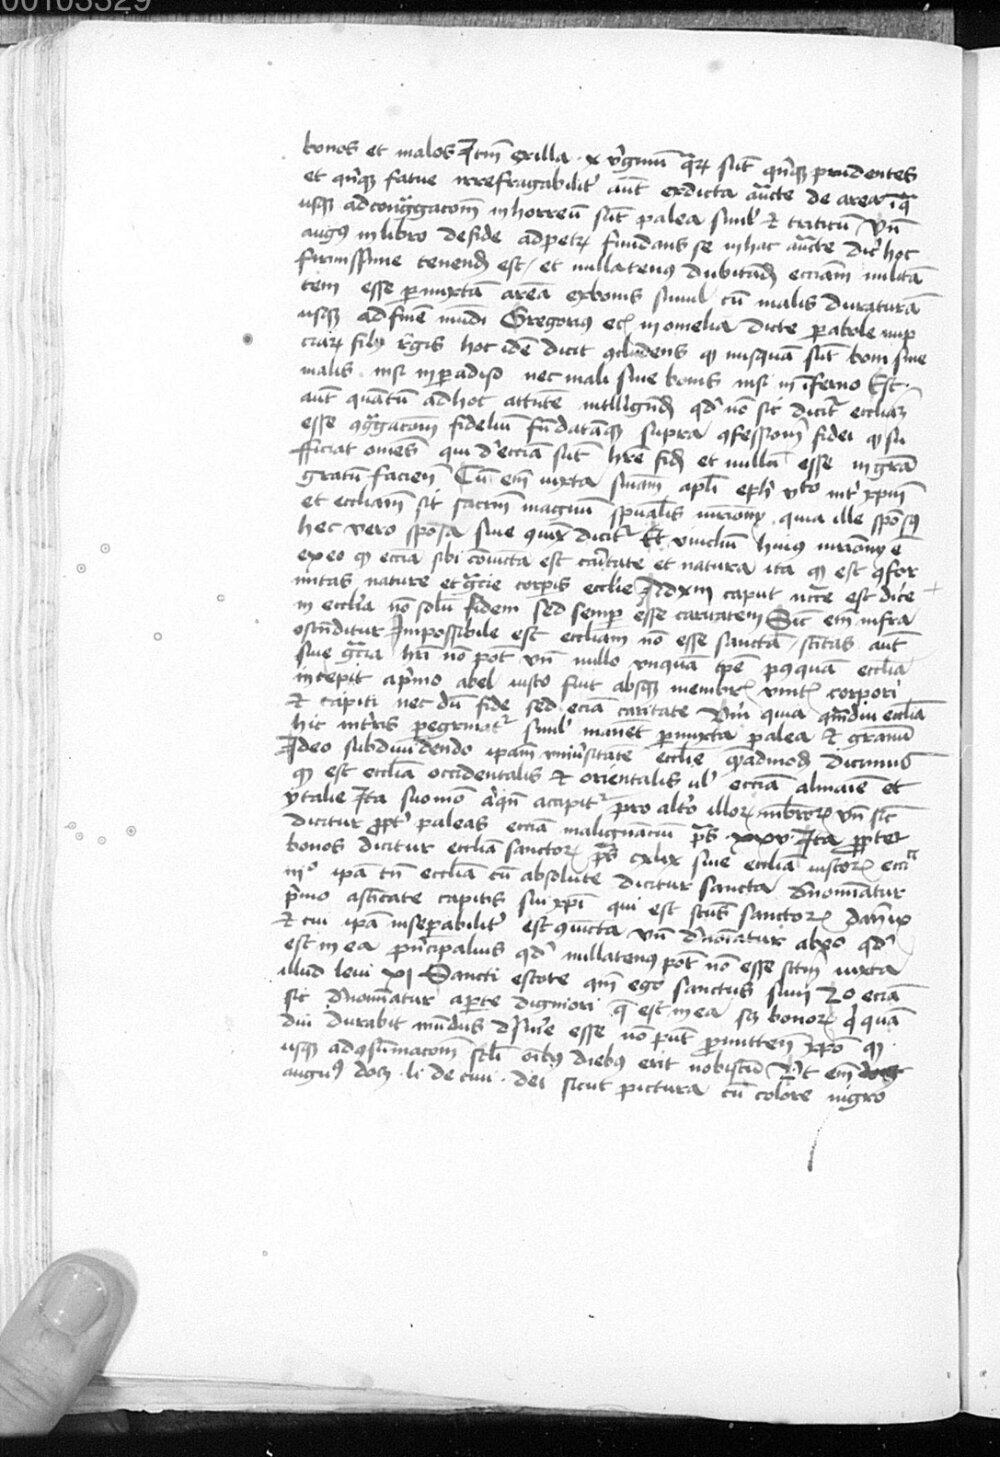 00103329
bonos et malos Itm̄ ex illa x v̓ginū quaꝝ sūt qn̄qꝫ prudentes
et qn̄qꝫ fatue irrefragabilit̓ aūt ex dicta auc̄te de area ī qa
usqꝫ ad congg̓acoem̄ in horreū sūt palea simul & triticū vn̄
augꝰ in libro de fide ad petrū fundans se in hac auc̄te dic̓ hoc
firmissime tenend̄ est et nullatenꝰ dubitand̄ eccīam militā
tem esse p̱mixtā areā ex bonis simul cū malis duraturā
usqꝫ ad finē mūdi Gregorius eciā in omelia dicte p̱abole nup
ciaꝝ filij r̓gis hoc idē dicit ꝯcludens qꝫ nusquā sūt boni sine
malis nisi in p̱adiso nec mali sine bonis nisi in īferno Est
aūt quātū ad hoc attente intlligend̄ qd̓ nō sic dicit̓ eccliaꝫ
esse ꝯgg̓acoem̄ fideliū fūdatāqꝫ supra ꝯfessionē fidei qꝫ su
fficiat omēs qui d̓ eccīa sūt hr̄e fidē et nullā esse in grām
gratū facien̄ Cū em̄ iuxta sniam apl̄i eph̓ vto int̓ xp̄m
et eccliam sit sacrm̄ magnū spūalis mr̄imonij quia ille sponsꝰ
hec vero sponsa sive ꝯiux dicit̓ Et vincl̄m huius mr̄imonij ē
ex eo qꝫ eccīa sibi cōiūcta est caritate et natura ita qꝫ est ꝯfor
mitas nature et gr̄cie corpis ecclie Ad xm̄ caput nec̄ce est dice
in ecclia nō solū fidem sed semper esse caritatem Sic em̄ infra
ostenditur Impossibile est eccliam nō esse sanctā / sc̄itas aut̄
sine gr̄cia hr̄i nō pot̄ vn̄ nullo vnquā tpe p̱ꝰquā ecclia
incepit a p̓mo abel iusto fuit absqꝫ membr̄ vnit̄ corpori
& capiti nec dū fide sed eciā caritate Vm̄ quia qm̄diu eccliā
hic in t̓ris pegrinat̓ simul manēt p̱mixta palea & granū
Ideo subdiuidendo ipam vniu̓sitatē ecclie quēadmodū dicimus
qꝫ est ecclia occidentalis & orientalis ul̓ eccīam almaīe et
ytalie Ita suo mō aliqn̄ accipit̓ pro alt̓o illoꝝ mēbroꝝ vn̄ sic
dicitur ꝓpt̓ paleas eccīa malignāciū p̄s xxv Ita ꝓpter
bonos dicitur ecclia sanctoꝝ p̄s cxlix sive eccliā iustoꝝ ecc̄i
iijº ipā tn̄ eccliā cū absolute dicitur sancta d̓nomīatur
p̓mo a sc̄itate capitis sui xp̄i qui est sc̄tus sanctoꝝ dan̄ ix
& cui ipā inseparabilit̓ est ꝯiūcta vn̄ d̓noīatur ab eo qd̓
est in ea p̓ncipalius qd̓ nullatenꝰ pot̄ nō esse sc̄tm̄ iuxta
illud levi xj Sancti estote qm̄ ego sanctus sum 2º eciā
sic d̓nomīatur a p̱te digniori q̄ est in ea sꝫ bonoꝝ q̓ quā
diu durabit mūdus d̓sin̓e esse nō p̱nt p̱mitten̄ xp̄o qꝫ
usqꝫ ad ꝯsūmacoem̄ sc̄li oībꝰ diebꝰ erit nobiscū Vt em̄
augꝰ doct li de ciui dei sicut pictura cū colore nigro